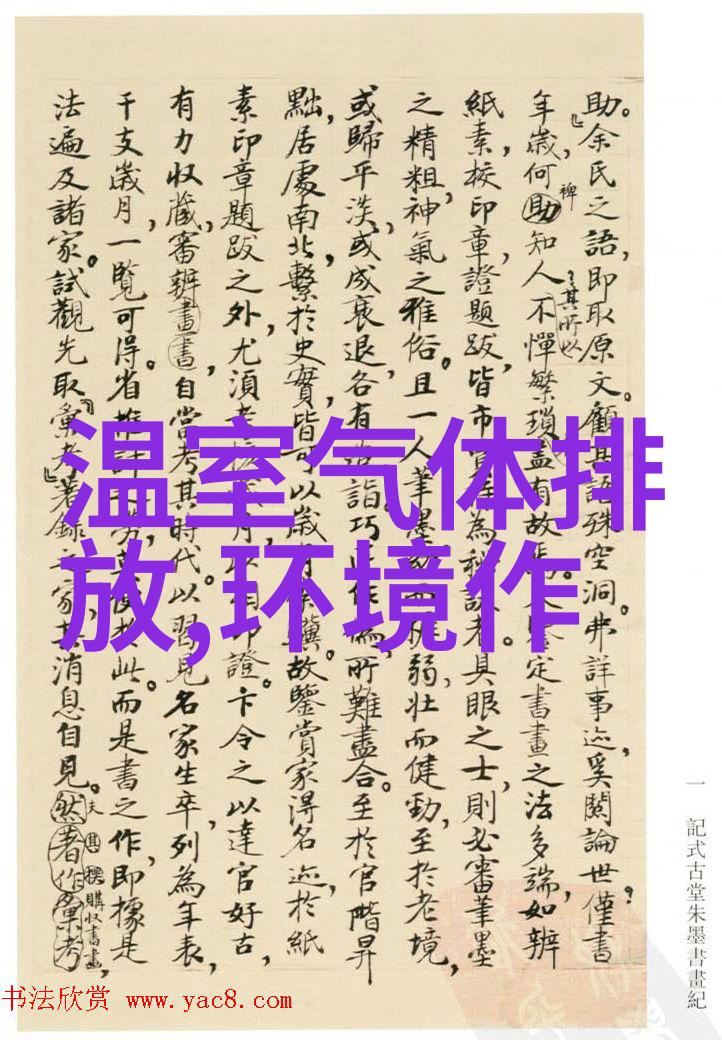 助。余氏之語,即取原文。顧其語殊空洞。弗詳事迹,奚關論世僅書
年歲,何助知人不憚繁瑣蓋有故
裨
其所以
定書畫之法多端,如辨
紙素,校印章,證題跋,皆市
為秘
者具眼之士,則必審筆墨
之精粗,神氣之雅俗。且一人筆墨
弱壯而健勁,至於老境,
或歸平淡,或成衰退,各有造詣巧
所難盡合。至於官階昇
黜,居處南北,繫於史實,皆可以歲月
驥。故鑒賞家得名迹,於紙
素印章題跋之外,尤須考
印證。卞令之以達官好古,
有力收藏,審辨畫書,自當考其時代。以習見名家生卒,列為年表,
干支歲月,一覽可得。省推
於此。而是書之作,即據是
法遍及諸家。試觀先取彙考著錄
家,其消息自見。然著作彙考,
夫
其撰購收書畫
温室气体排
放,环境作
一 記式古堂朱墨書畫紀
书法欣赏 www.yac8.com